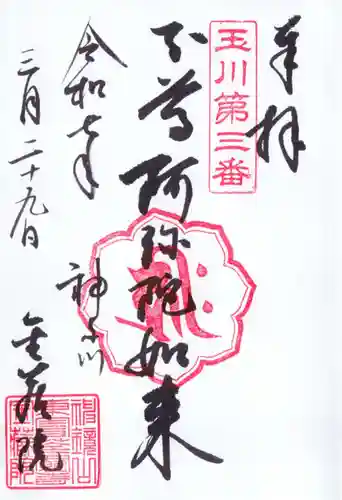 奉拝
玉川第三番
本尊阿弥陀如来
令和七年
三月二十九日
神小川
金蔵院